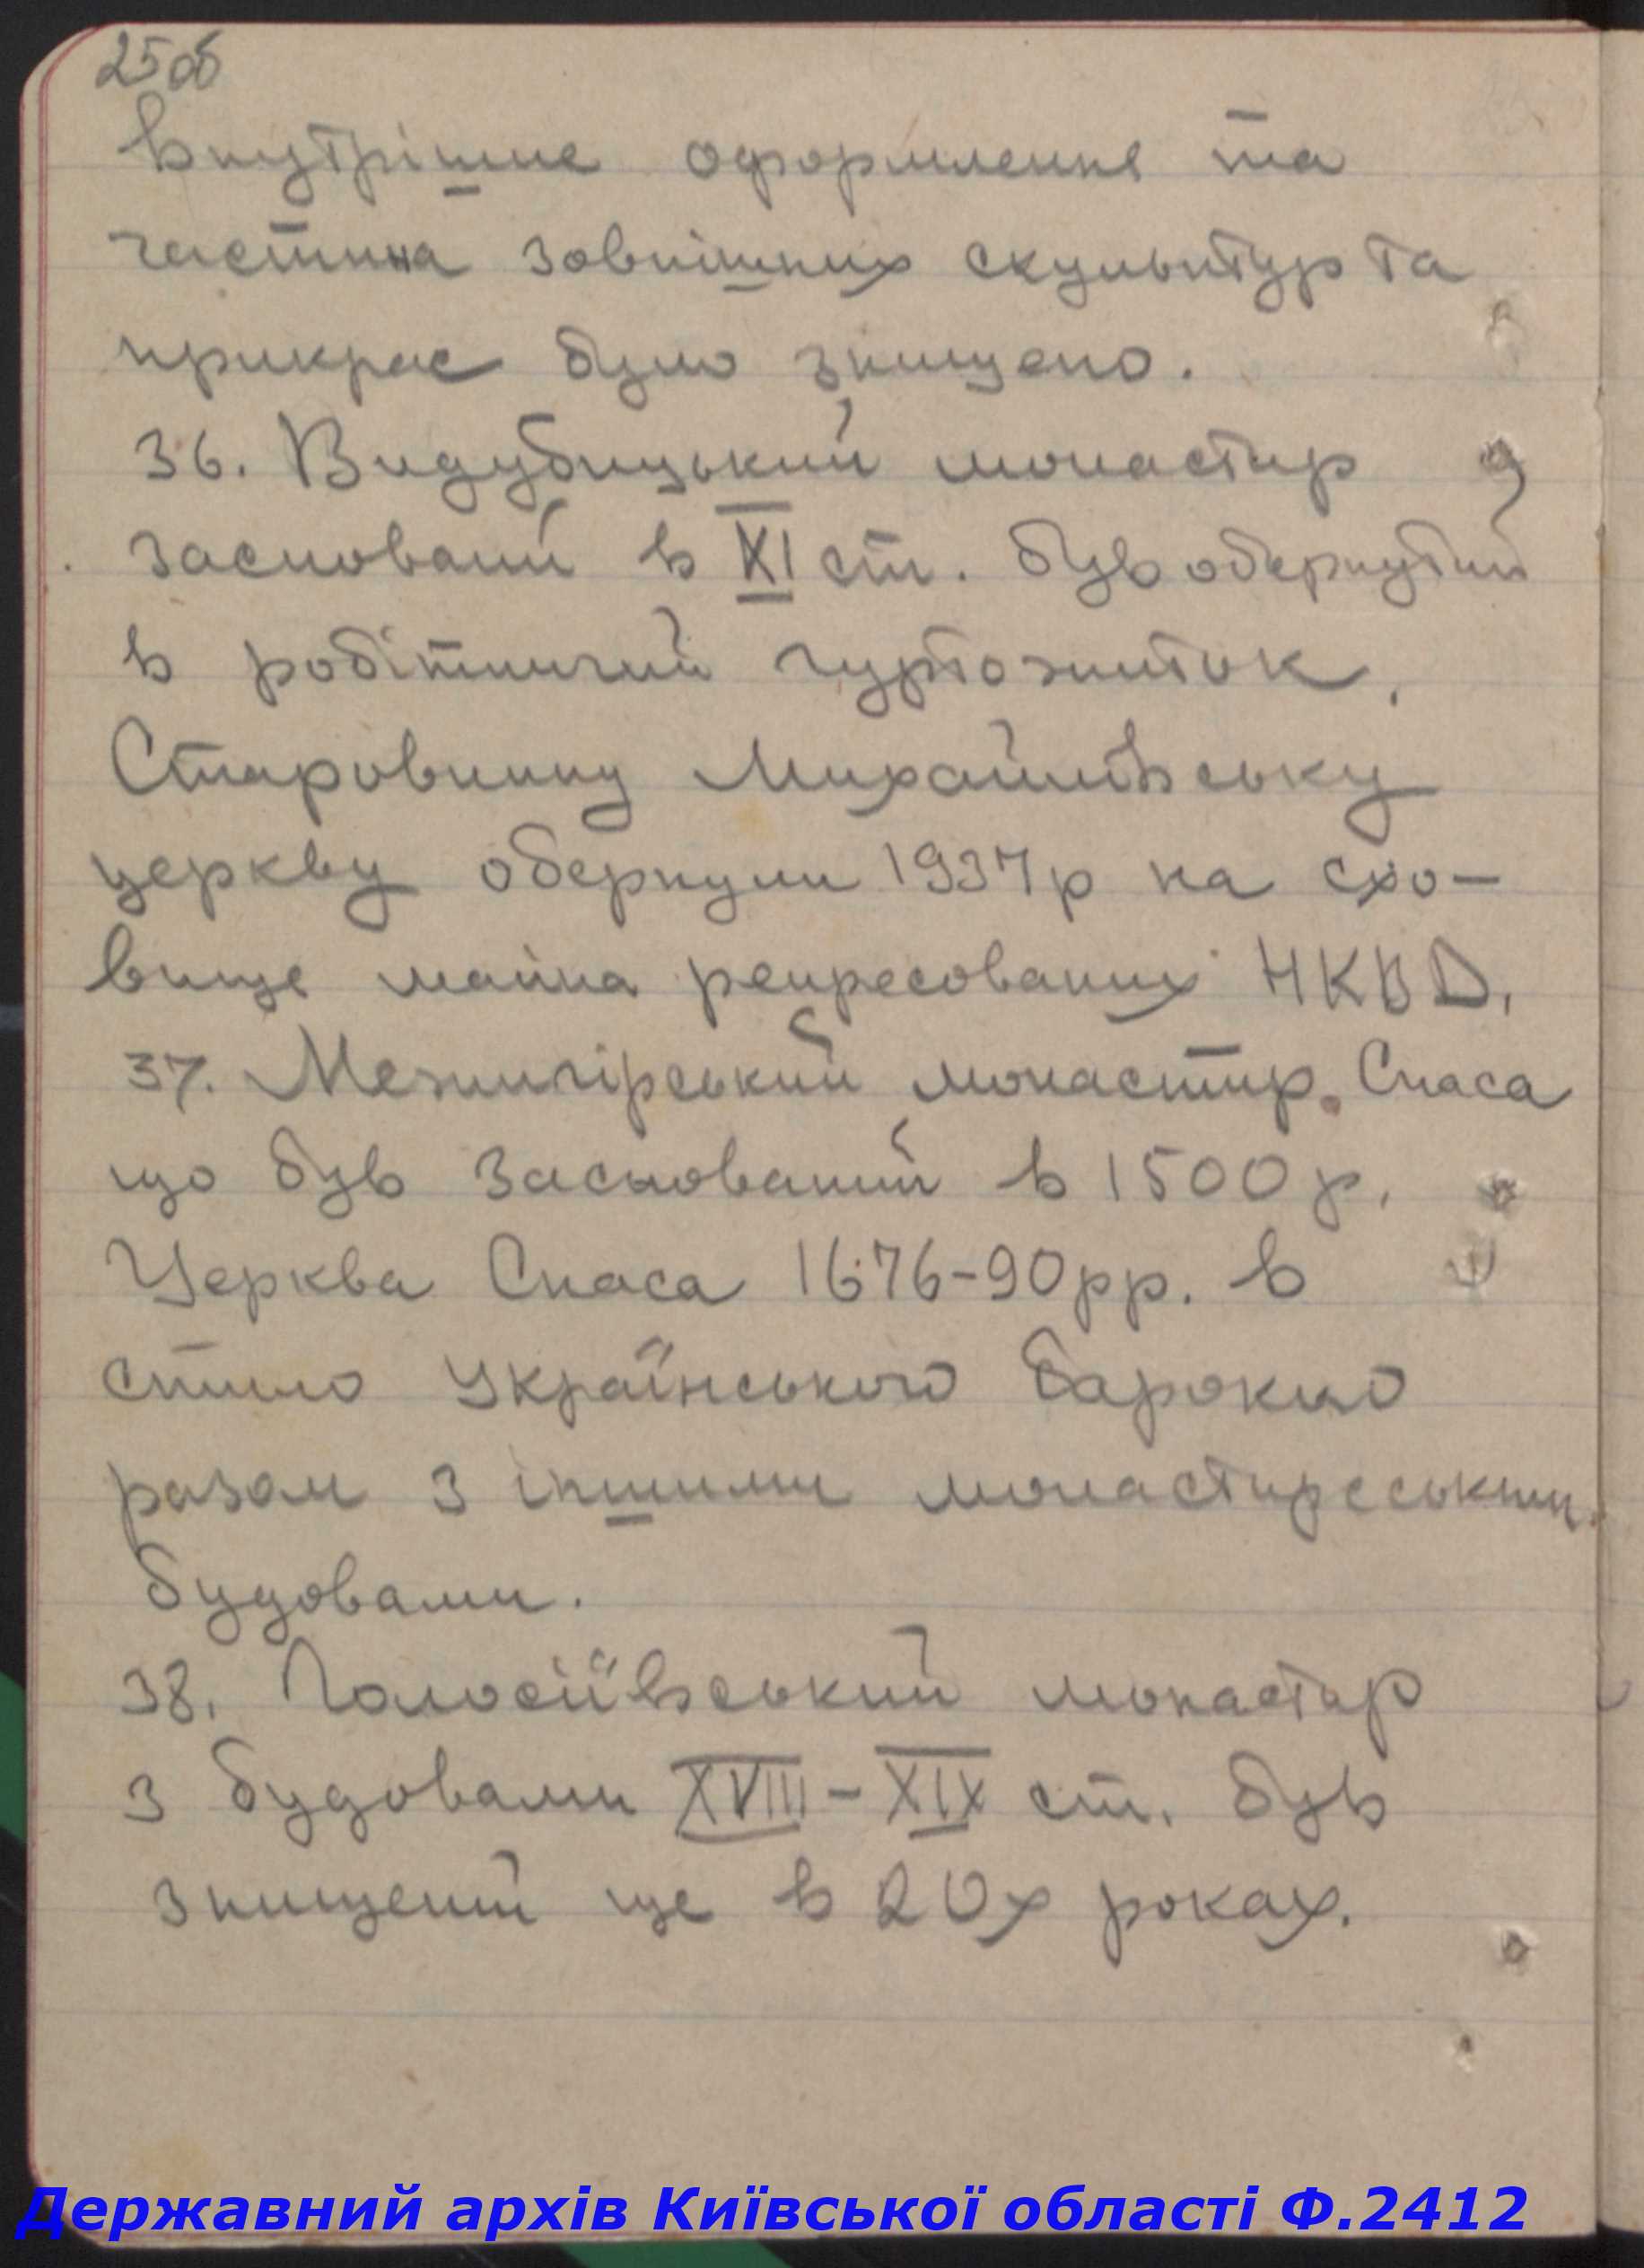 25об
Внутрішнє оформленнє та
частина зовнішних скульптур та
прикрас було знищено.
36. Видубицький монастир
заснований в XI ст. був обернутий
в робітничий гуртожиток.
Старовинну Михайлівську
церкву обернули 1937р на схо-
вище майна репресованих НКВД.
37. Межигірський монастир Спаса
що був заснований в 1500 р.
Церква Спаса 1676-90рр. в
стилю українського барокко
разом з іншими монастирськими
будовами.
38. Голосіївський монастир
з будовами XVIII-XIX ст. був
знищений ще в 20х роках.
Державний архів Київської області Ф.2412